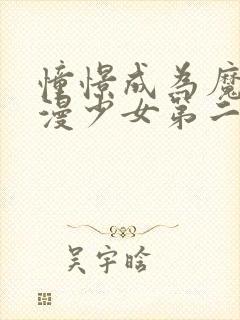 憧憬成为魔
漫少女第二
吴宇晗